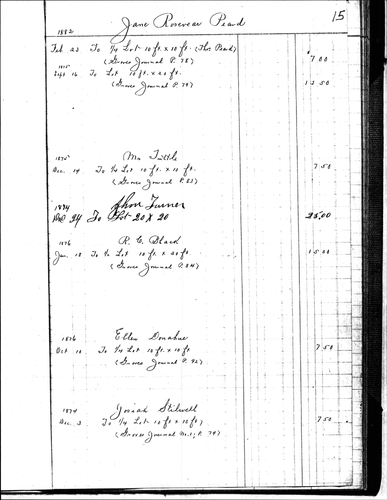 15
Jane Rosevear Peard
1882
Feb 23 To 1/4 Lot 10 ft. x 10 ft. (Thos Peard) 7 00
(Graves Journal P. 78)
Sept 16 To Lot 10 ft. x 20 ft. 15 50
(Graves Journal P. 79)
1875 Mr Tuttle
Dec. 14 To 1/4 Lot 10 ft. x 10 ft. 7.50
(Graves Journal P. 83)
1884 John Turner
24 To Lot 20 x 20 25.00
1876 R. C. Black
Jan. 18 To 1/2 Lot 10 ft. x 20 ft. 15 00
(Graves Journal P. 84)
1876 Ellen Donahue
Oct 10 To 1/4 Lot 10 ft. x 10 ft 7 50
(Graves Journal P. 92)
1874 Josiah Stilwell
Dec. 3 To 1/4 Lot 10 ft x 10 ft, 7 50
(Graves Journal No. 1, P. 79)